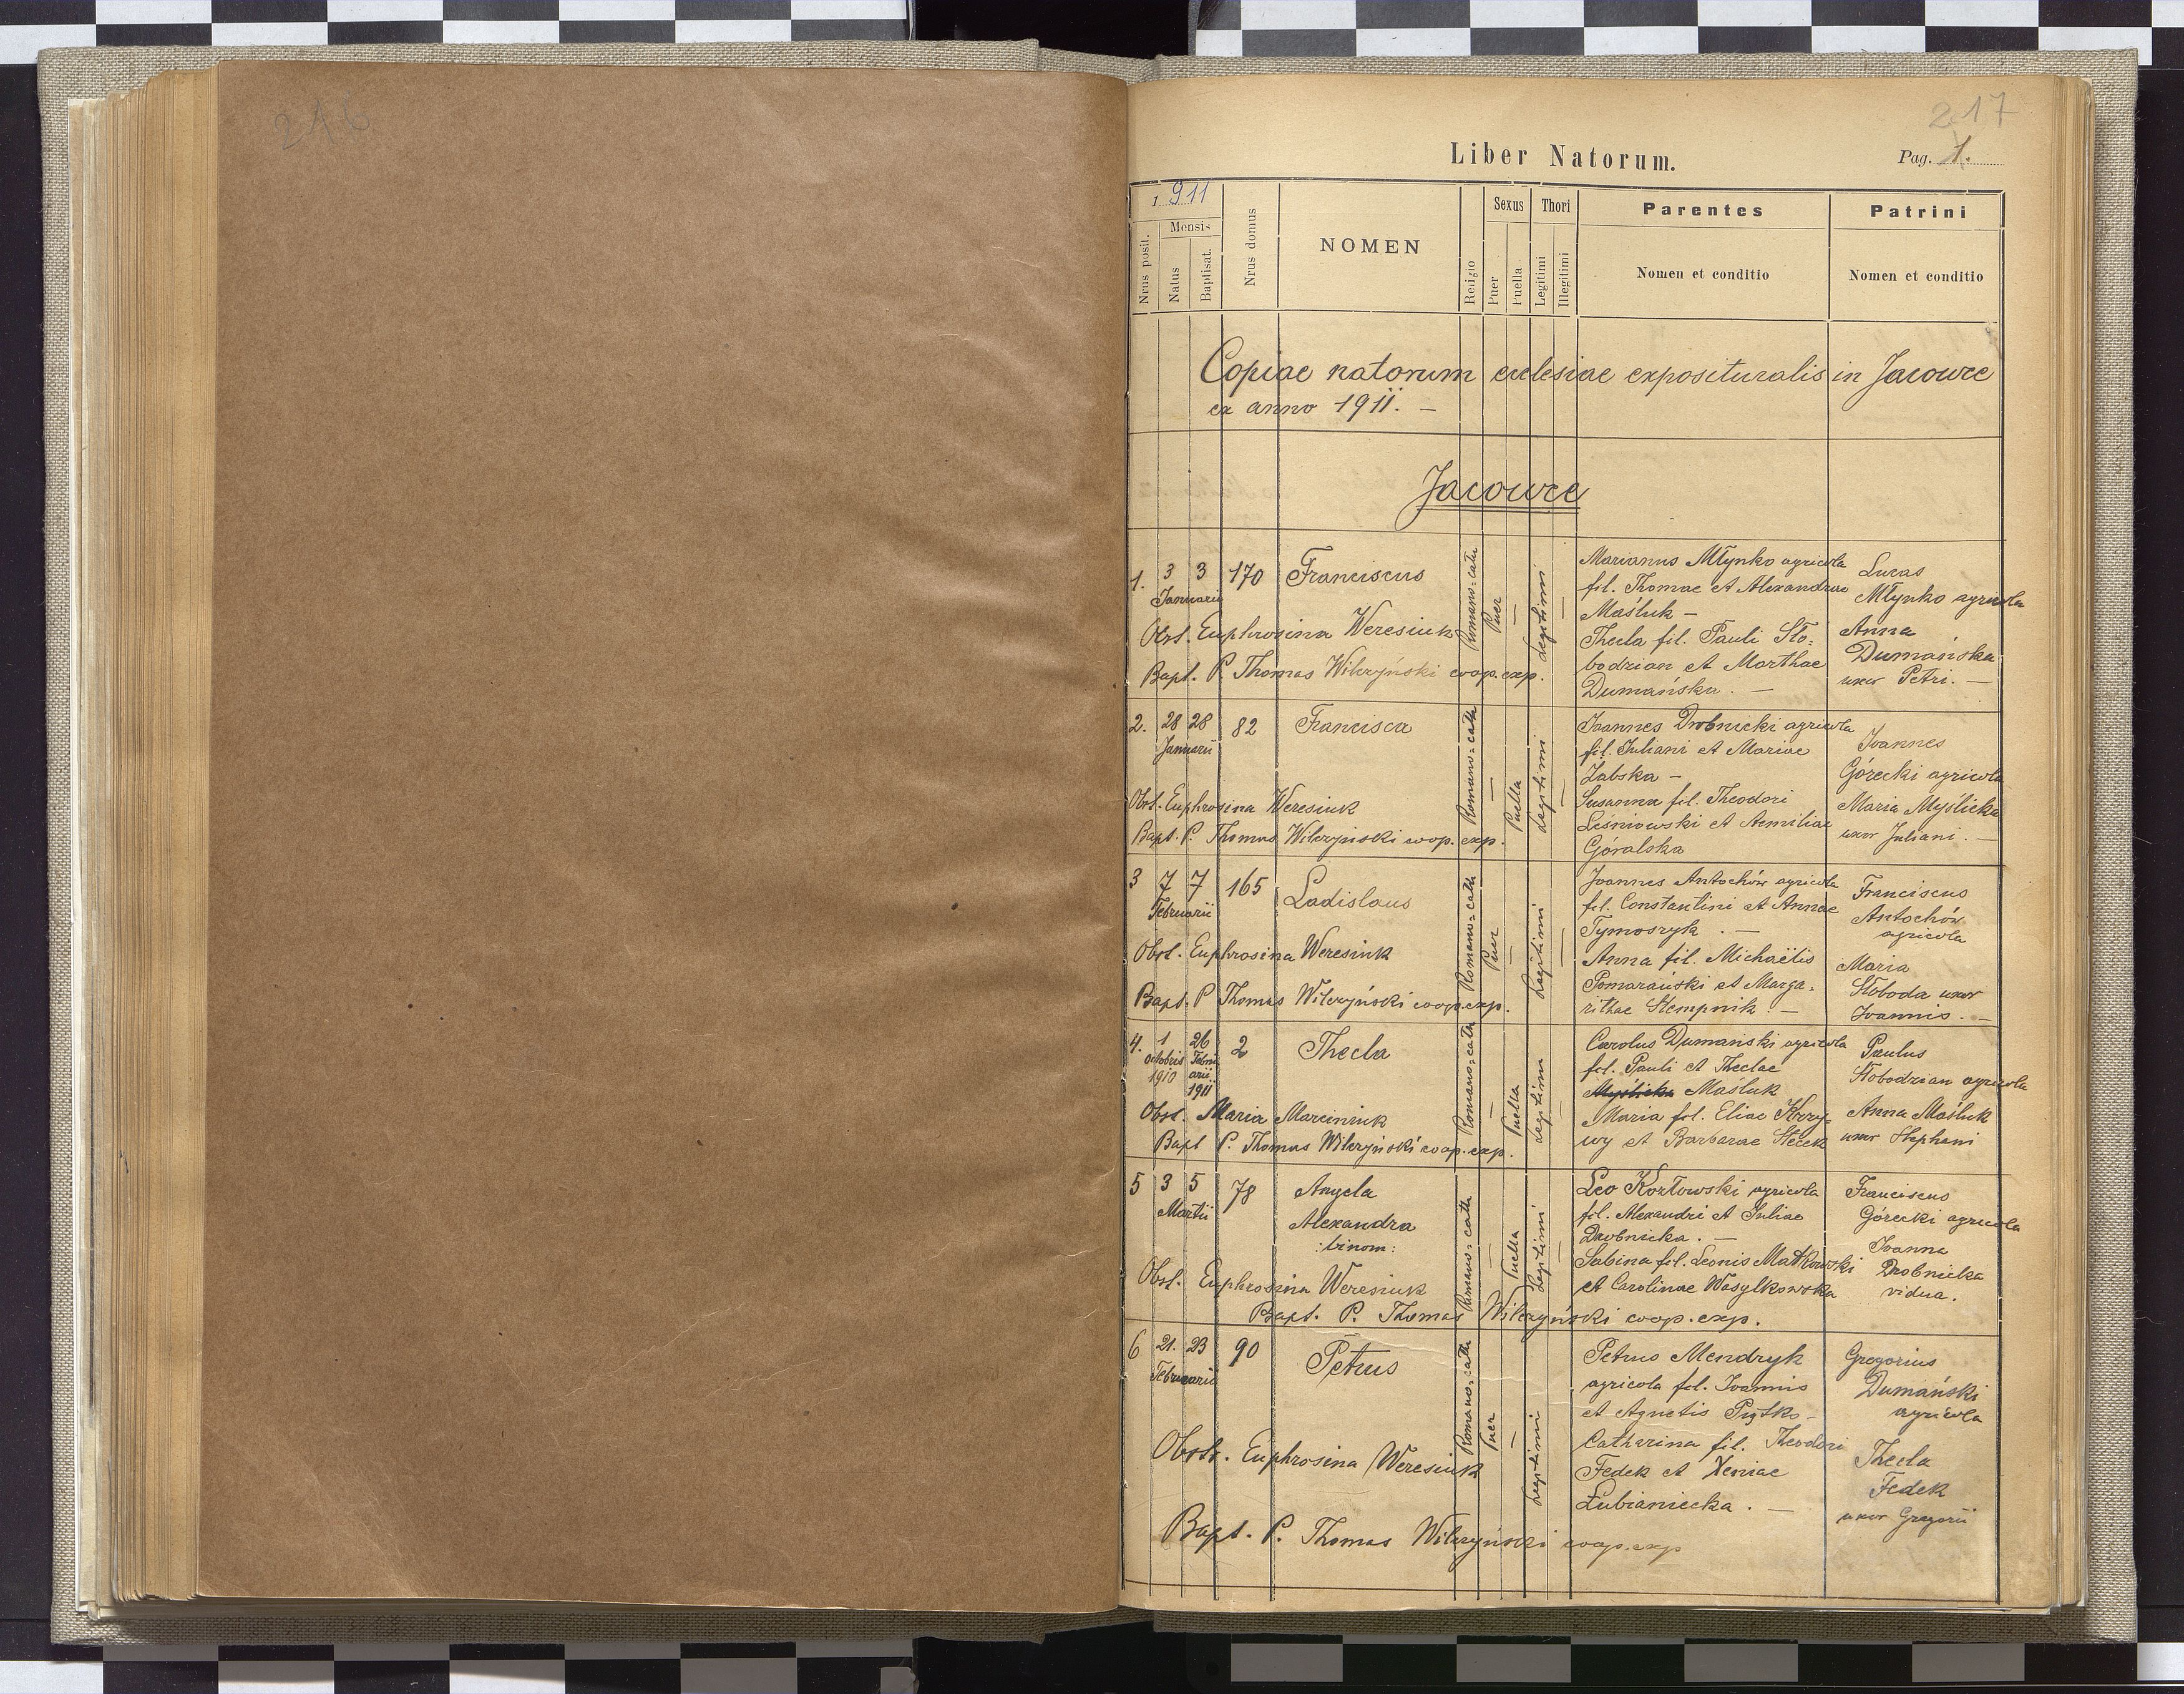 216
217
Liber Natorum.
Pag. 1.
1911
Nrus posit.
Mensis
Natus
Baptisat.
Nrus domus
NOMEN
Religio
Sexus
Puer
Puella
Thori
Legitimi
Illegitimi
Parentes
Nomen et conditio
Patrini
Nomen et conditio
Copiae natorum ecclesiae exposituralis in Jacowce
ex anno 1911. -
Jacowce
1. 3 3 170 Franciscus
Januarii
Romano=cath
Puer
—
Legitimi
—
Obst. Euphrosina Weresiuk
Bapt. P. Thomas Wilczyński coop. exp.
Marianus Młynko agricola
fil. Thomae et Alexandrae
Maśluk -
Thecla fil. Pauli Sło=
bodzian et Marthae
Dumańska. -
Lucas
Młynko agricola
Anna
Dumańska
uxor Petri. -
2. 28 28 82 Francisca
Januarii
Romano=cath
—
Puella
Legitimi
—
Obst. Euphrosina Weresiuk
Bapt. P. Thomas Wilczyński coop. exp.
Joannes Drobnicki agricola
fil. Juliani et Mariae
Żabska -
Susanna fil. Theodori
Leśniowski et Aemiliae
Góralska
Joannes
Górecki agricola
Maria Myślicka
uxor Juliani. -
3 7 7 165 Ladislaus
Februarii
Romano=cath
Puer
—
Legitimi
—
Obst. Euphrosina Weresiuk
Bapt. P Thomas Wilczyński coop. exp.
Joannes Antochów agricola
fil. Constantini et Annae
Tymoszyk. -
Anna fil. Michaëlis
Pomarański et Marga=
rithae Stempnik. -
Franciscus
Antochów
agricola
Maria
Słoboda uxor
Joannis. -
4. 1 26 2 Thecla
Octobris Febru
1910 arii
1911
Romano=cath
—
Puella
Legitimi
—
Obst. Maria Marciniuk
Bapt P. Thomas Wilczyński coop. exp.
Carolus Dumański agricola
fil. Pauli et Theclae
Myślicka Maśluk
Maria fil. Eliae Krzy=
wy et Barbarae Stecek
Paulus
Słobodzian agricola
Anna Maśluk
uxor Stephani
5 3 5 78 Angela
Martii
Alexandra
:binom:
Romano=cath
—
Puella
Legitimi
—
Obst. Euphrosina Weresiuk
Bapt. P. Thomas Wilczyński coop. exp.
Leo Kozłowski agricola
fil. Alexandri et Juliae
Drobnicka. -
Sabina fil. Leonis Matkowski
et Carolinae Wasylkowska
Franciscus
Górecki agricola
Joanna
Drobnicka
vidua.
6 21. 23 90 Petrus
Februarii
Romano=cath
Puer
—
Legitimi
Obstr. Euphrosina Weresiuk
Bapt. P. Thomas Wilczyński coop. exp
Petrus Mendryk
agricola fil. Joannis
et Agnetis Piątko -
Catharina fil. Theodori
Fedek et Xeniae
Łubianiecka. -
Gregorius
Dumański
agricola
Thecla
Fedek
uxor Gregorii